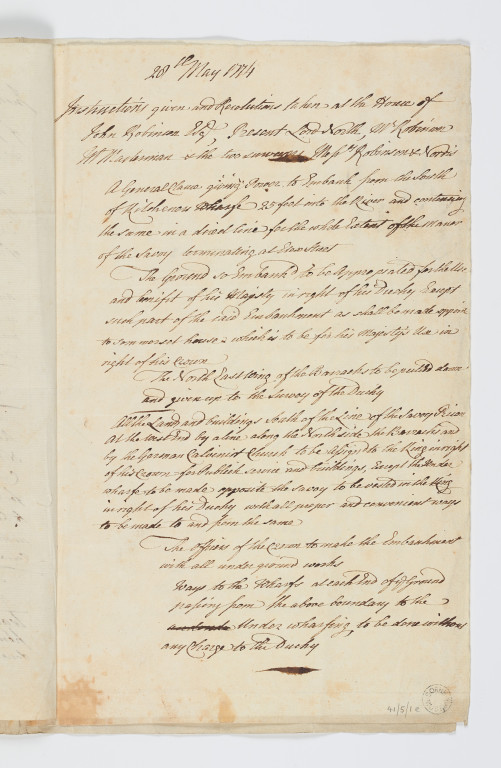 28th May 1774
Instructions given and Resolutions taken at the House of
John Robinson Esqr. Present Lord North, Mr Robinson
Mr Masterman & the two surveyors Messrs Robinson & Norris
A General Clause giving Power to Embank from the South
of Kitchener Wharfe 25 feet into the River and continuing
the same in a direct line for the whole Extent of the Manor
of the Savoy terminating at Essex Street
The Ground so Embank'd to be Appropriated for the Use
and benifit of his Majesty in right of his Duchy Except
such part of the said Embankment as shall be made opposite
to Sommorset house which is to be for his Majesty's Use in
right of his Crown
The North East Wing of the Barracks to be pulled down
and given up to the Survey of the Duchy
All the Land and buildings South of the Line of the Savoy Prison
at the West End by a line along the North side the Barracks and
by the German Calvenist Church to be Assign'd to the King in right
of his Crown for Publick and buildings, Except the Under
wharfe to be made opposite the Savoy to be vested in the King
in right of his Duchy with all proper and convenient ways
to be made to and from the same
The Officers of the Crown to make the Embankment
with all under ground works
Ways to the Wharfs at each End of ye Ground
passing from the above boundary to the
Under wharfing to be done without
any Charge to the Duchy
41/5/1 e